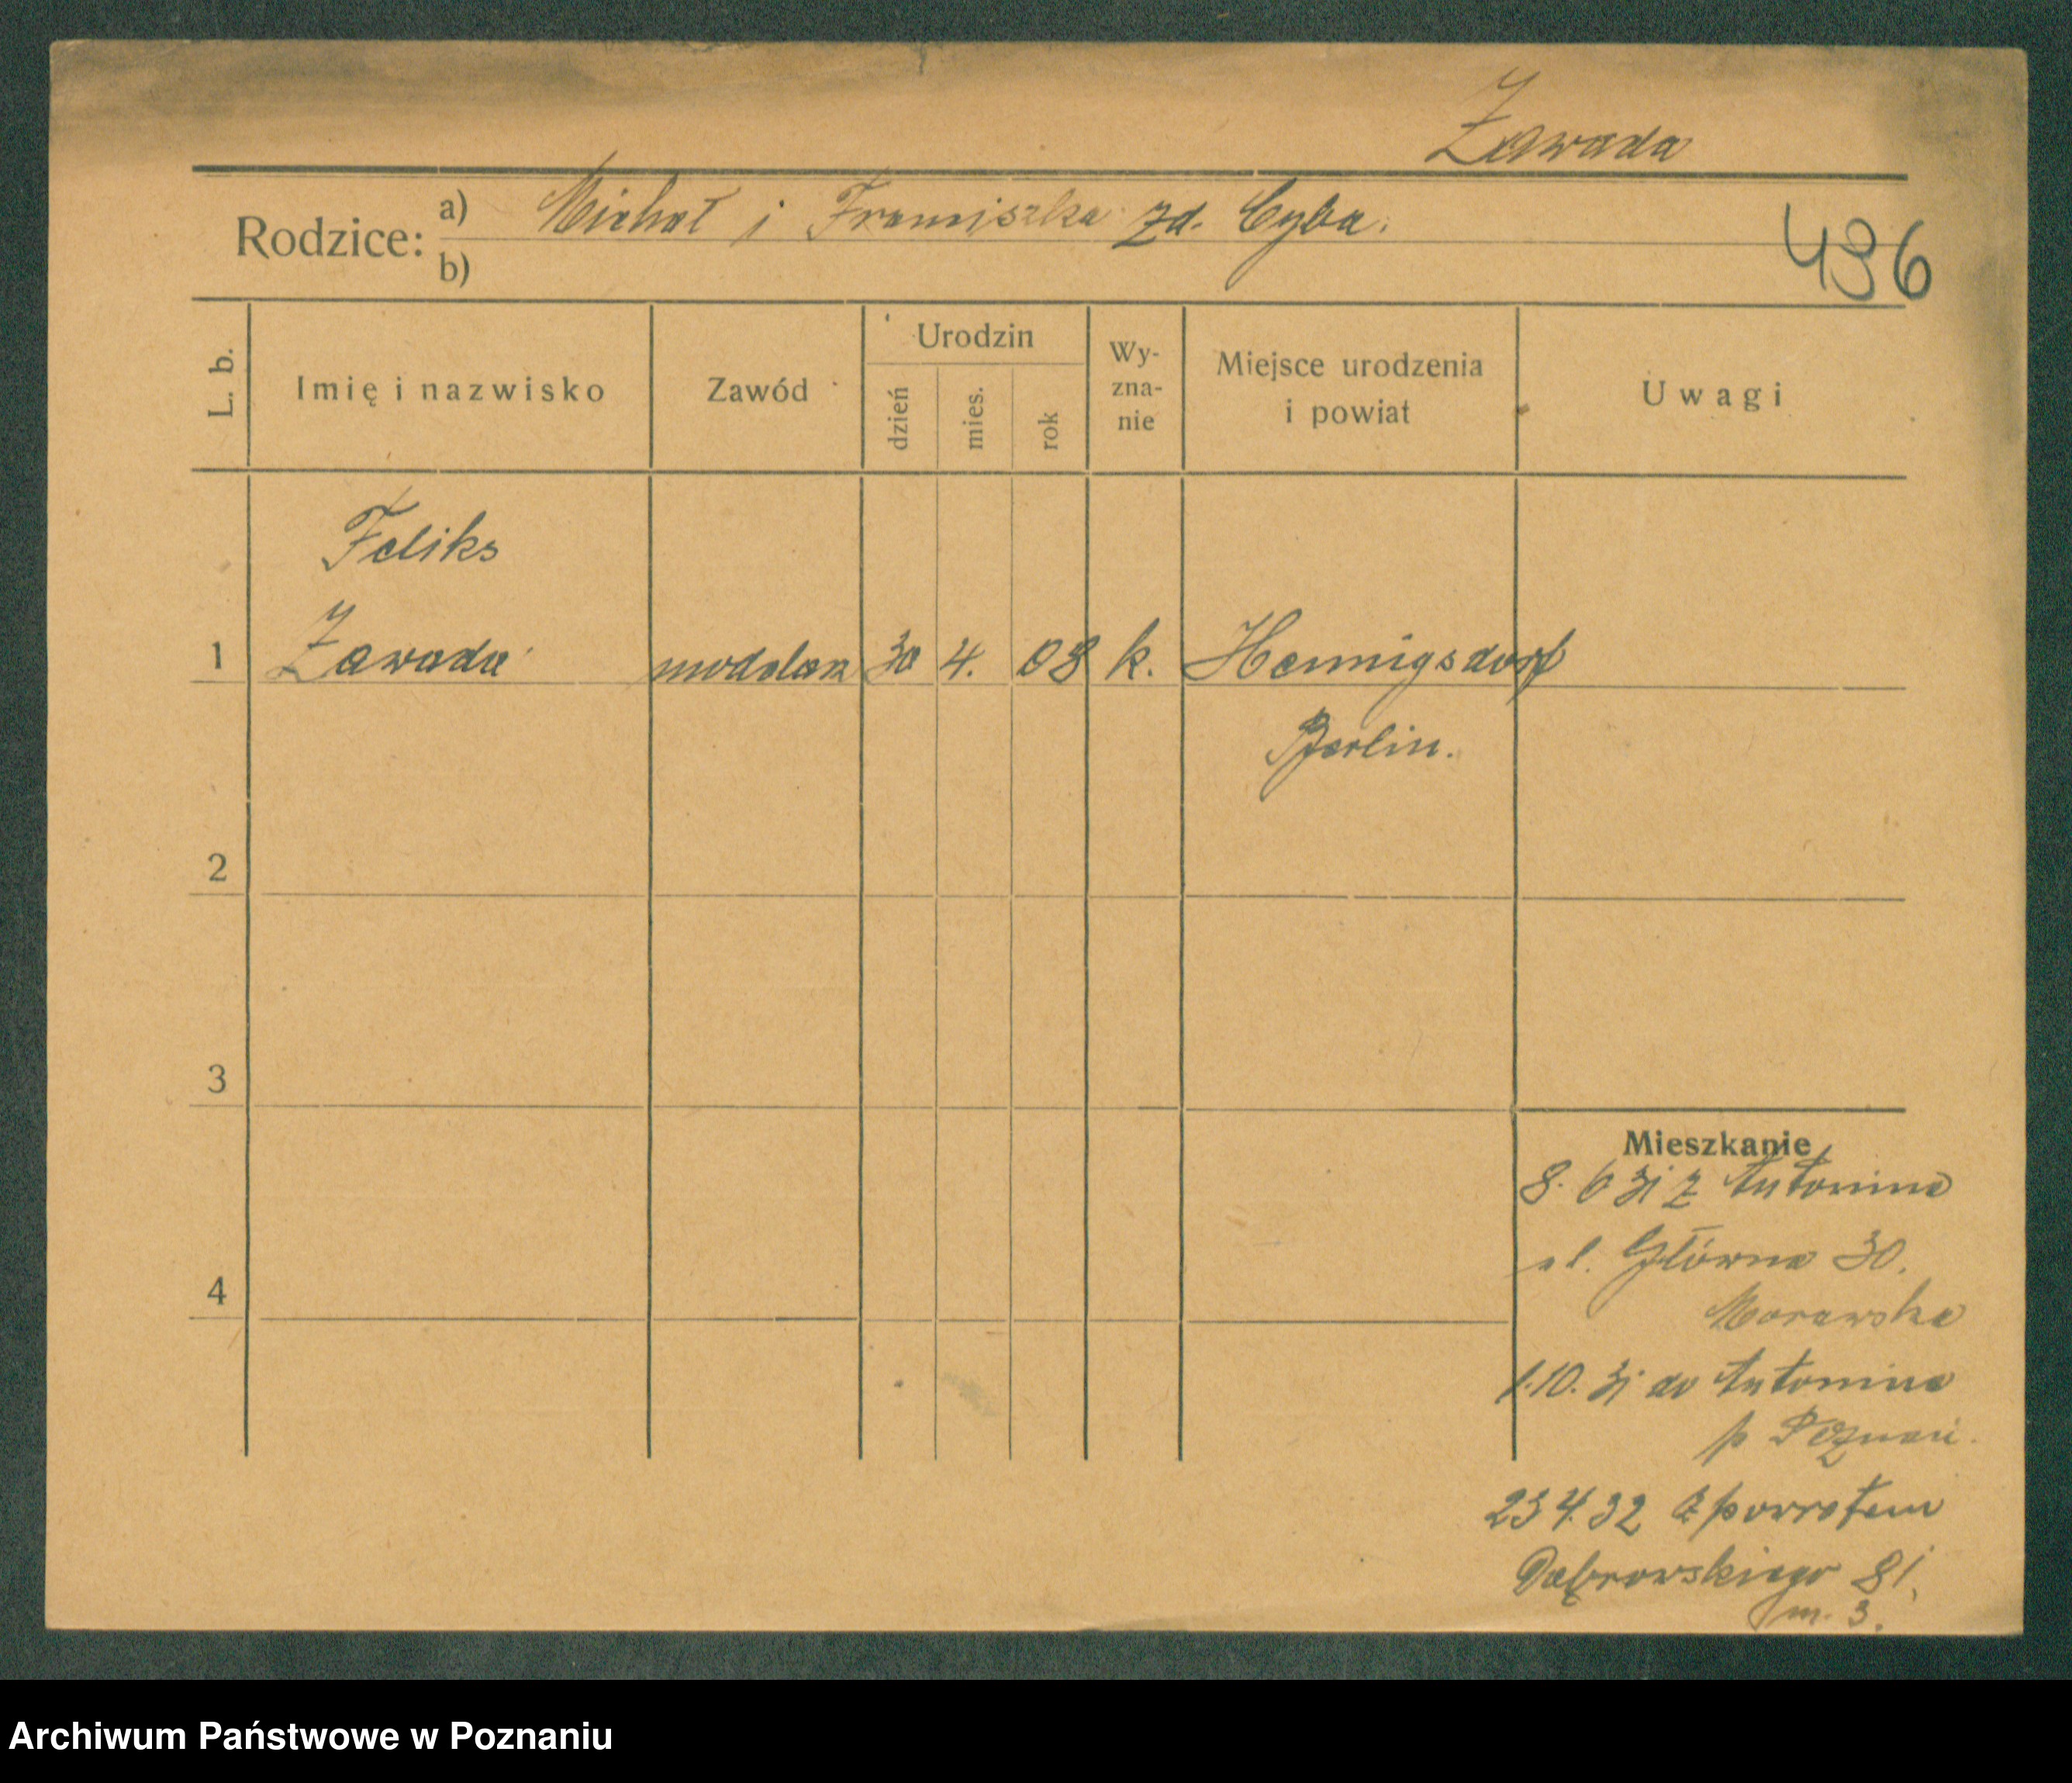 Zawada
Rodzice: a) Michał i Franciszka zd. Cyba.
b)
496
L. b.
Imię i nazwisko
Zawód
Urodzin
dzień
mies.
rok
Wy-
zna-
nie
Miejsce urodzenia
i powiat
Uwagi
Feliks
1 Zawada modelarz 30 4. 08 k. Hennigsdorf
Berlin.
2
3
4
Mieszkanie
8. 6 31 z Antonina
ul. Główna 30.
Morawska
1.10. 31 do Antonina
p Poznań.
23 4.32 z powrotem
Dąbrowskiego 81.
m. 3.
Archiwum Państwowe w Poznaniu